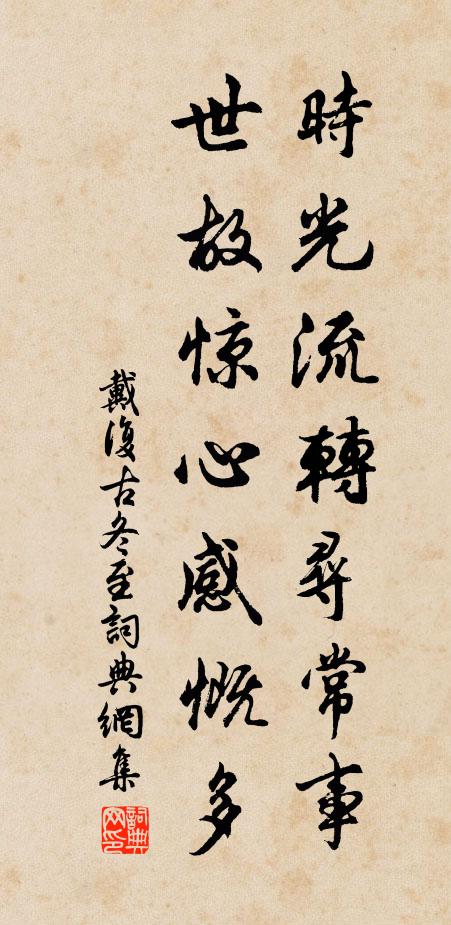 時光流轉尋常事
世故惊心感慨多
戴復古冬至詞典網集
詞典网印